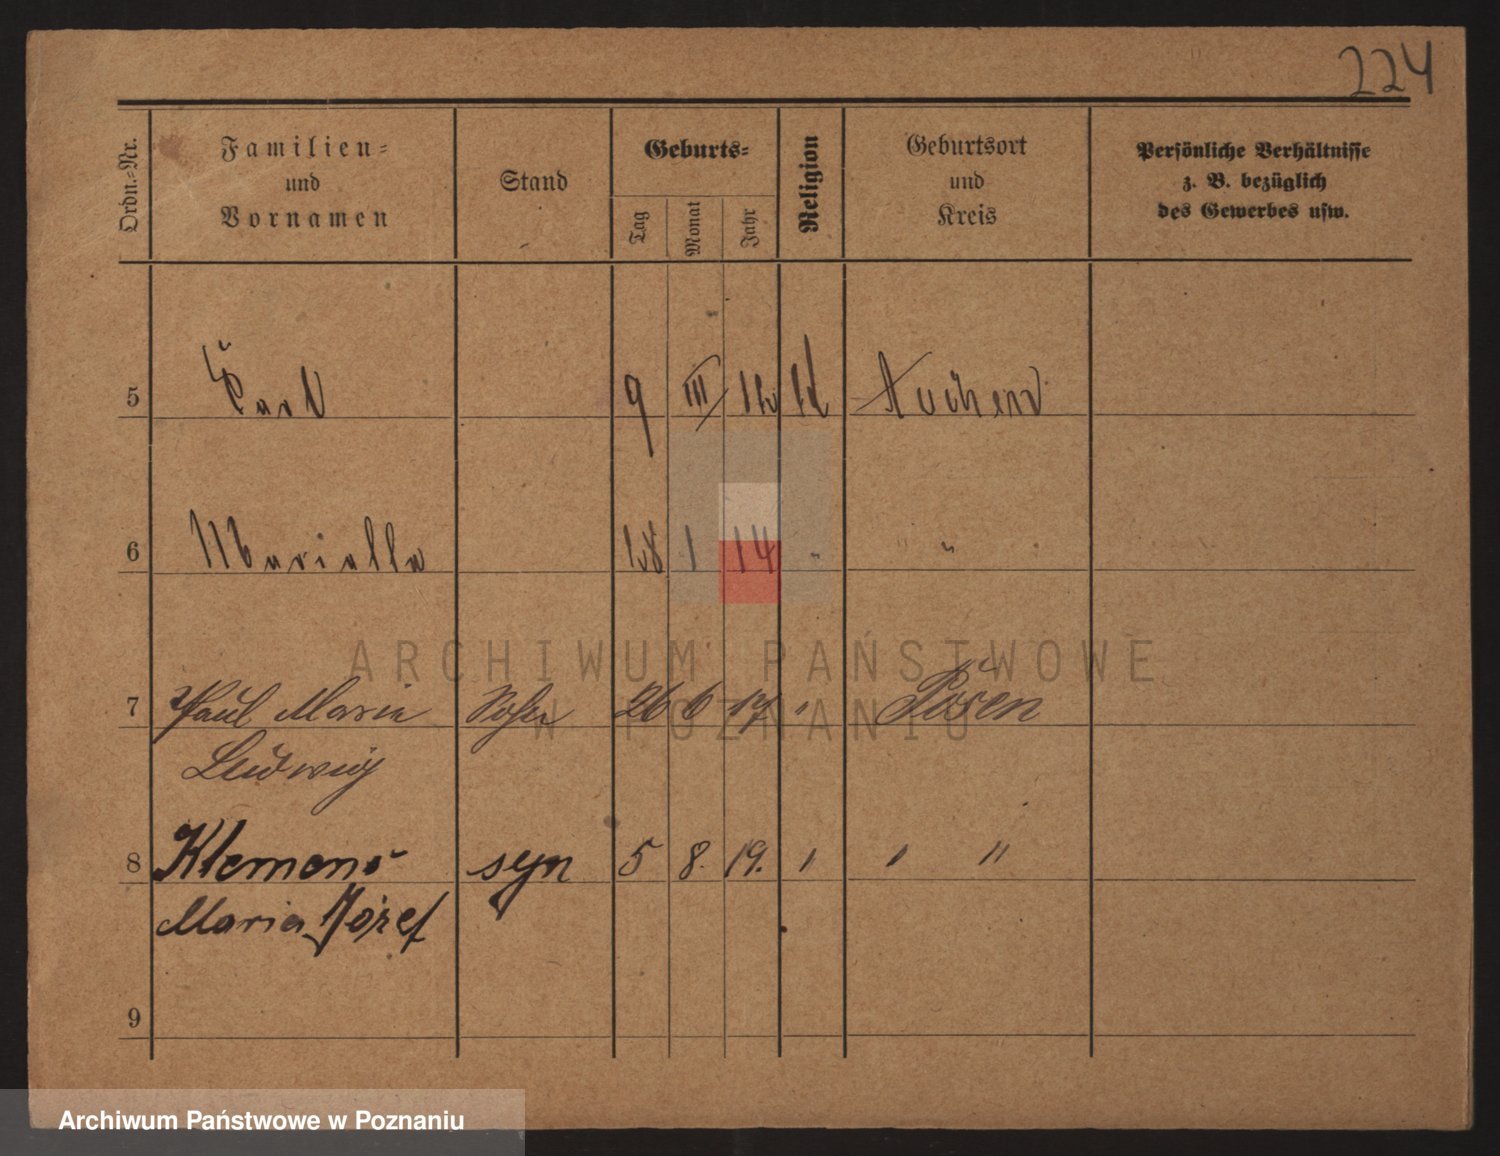 224
Ordn.-Nr.
Familien-
und
Vornamen
Stand
Geburts-
Tag
Monat
Jahr
Religion
Geburtsort
und
Kreis
Persönliche Verhältnisse
z. B. bezüglich
des Gewerbes usw.
5 9 III
6 Mariella 1 14 " " "
ARCHIWUM PAŃSTWOWE
W POZNANIU
7 Paul Maria Sohn 26 6 17 " Posen
Ludwig
8 Klemens syn 5 8. 19. " " "
Maria Józef
9
Archiwum Państwowe w Poznaniu